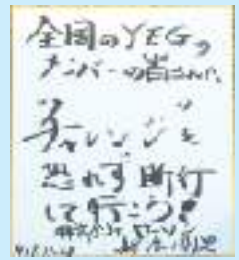 全国のYEGの
ナンバーの皆さんへ
"チャレンジ"を
恐れず断行
して行こう!